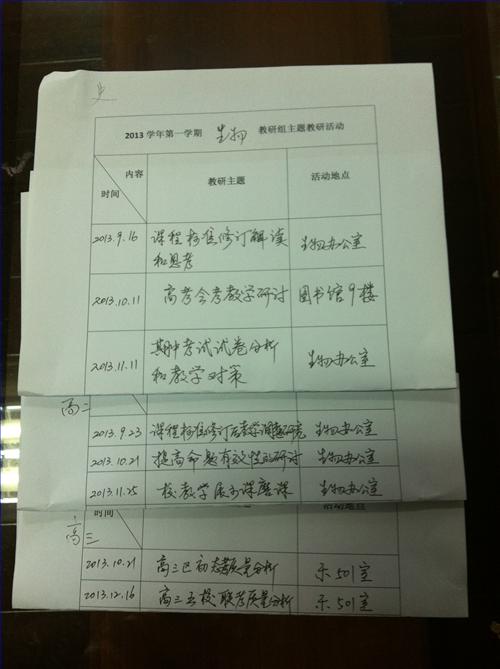 2013 学年第一学期 生物 教研组主题教研活动
内容
时间
教研主题
活动地点
2013.9.16 课程标准修订解读和思考 生物办公室
2013.10.11 高考会考教学研讨 图书馆9楼
2013.11.11 期中考试试卷分析和教学对策 生物办公室
高二
2013.9.23 课程标准修订后教学调整研究 生物办公室
2013.10.21 提高命题有效性的研讨 生物办公室
2013.11.25 校教学展示课磨课 生物办公室
高三
时间
活动地点
2013.10.21 高三区初态考质量分析 501室
2013.12.16 高三五校联考质量分析 501室